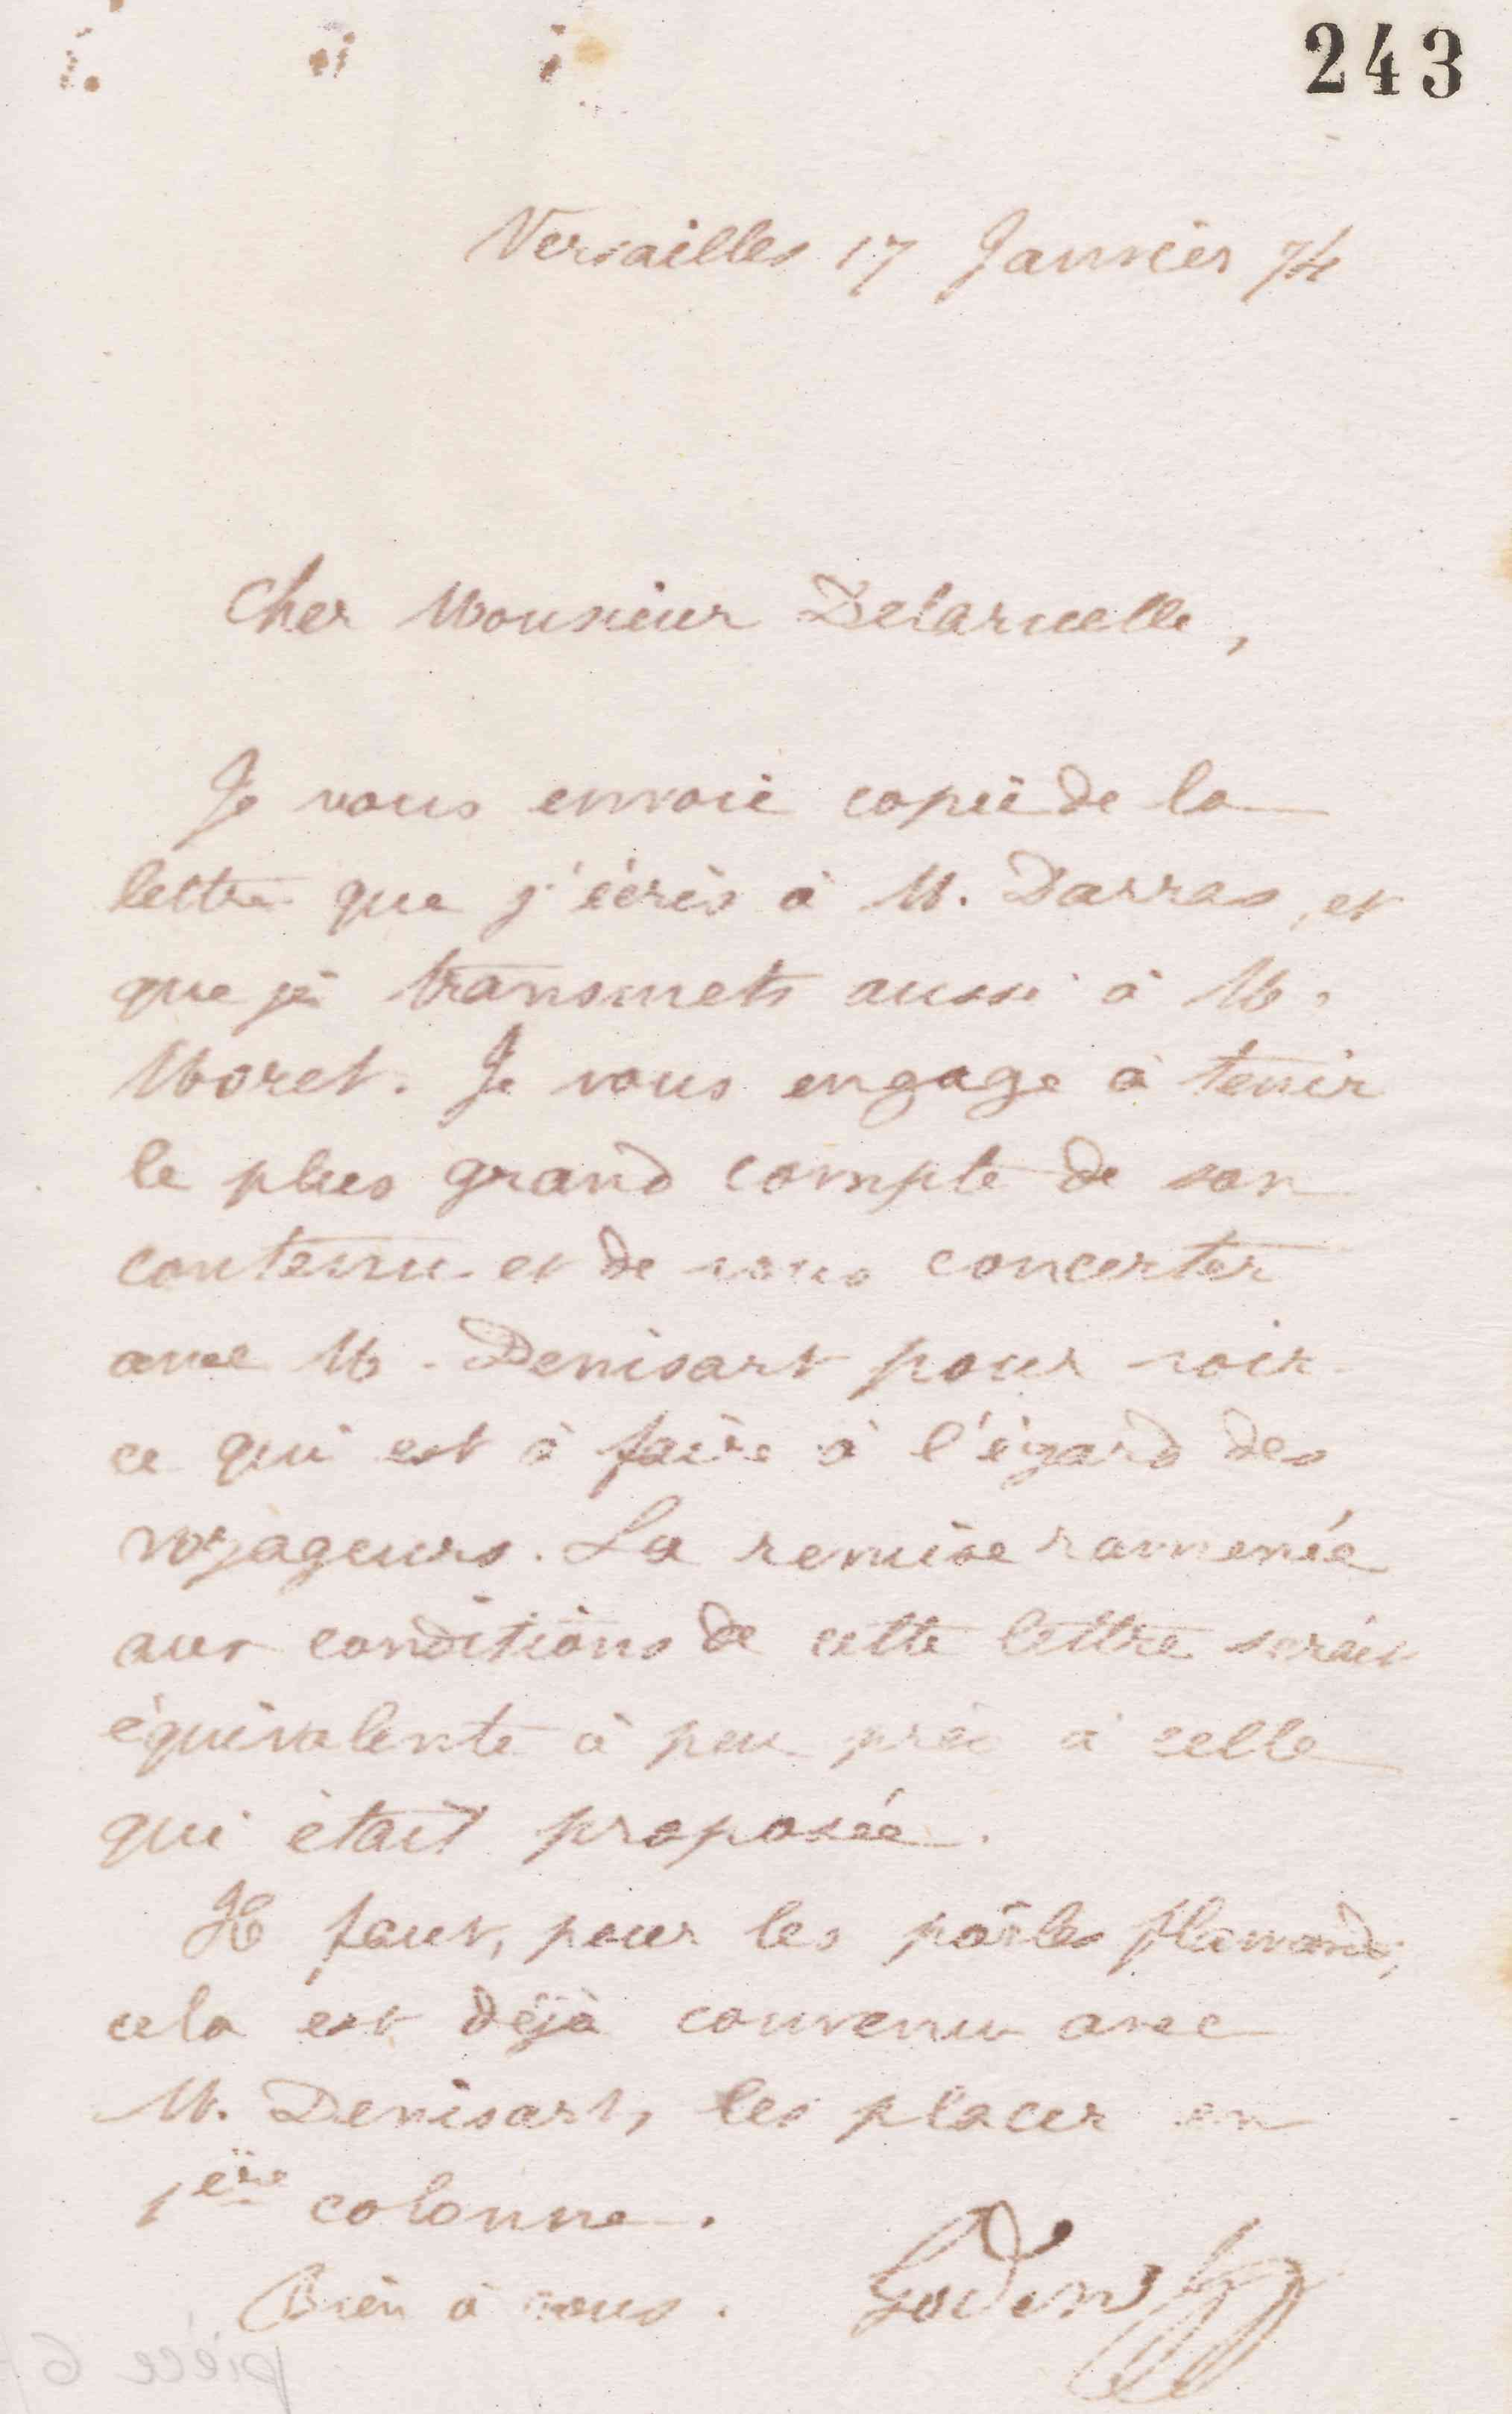 243
Versailles 17 Janvier 74
Cher Monsieur Delaruelle,
Je vous envoie copie de la
lettre que j'écris à M. Darras, et
que je transmets aussi à M.
Moret. Je vous engage à tenir
le plus grand compte de son
contenu et de vous concerter
avec M. Denisart pour voir
ce qui est à faire à l'égard des
voyageurs. La remise ramenée
aux conditions de cette lettre serait
équivalente à peu près à celle
qui était proposée.
Il faut, pour les poêles flamands,
cela est déjà convenu avec
M. Denisart, les placer en
1ère colonne.
Bien à vous. Godin
pièce 6